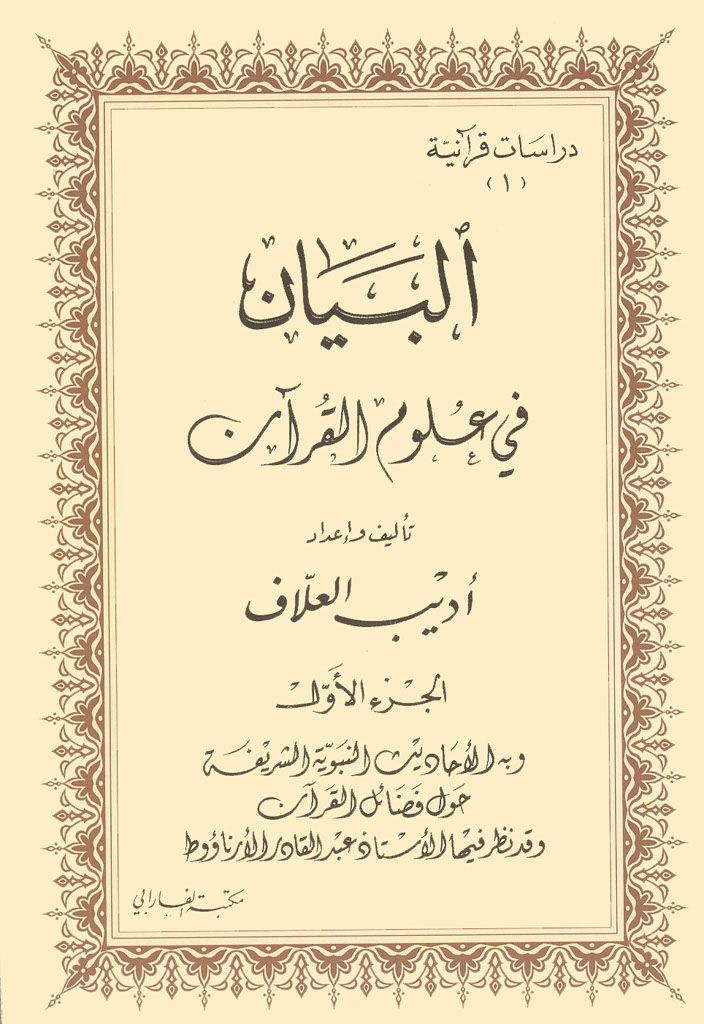 دراسات قرآنية
(١)
البيان
في علوم القرآن
تأليف وإعداد
أديب العلّاف
الجزء الأوّل
وبه الأحاديث النبويّة الشريفة
حول فضائل القرآن
وقد نظر فيها الأستاذ عبد القادر الأرناؤوط
مكتبة الفارابي